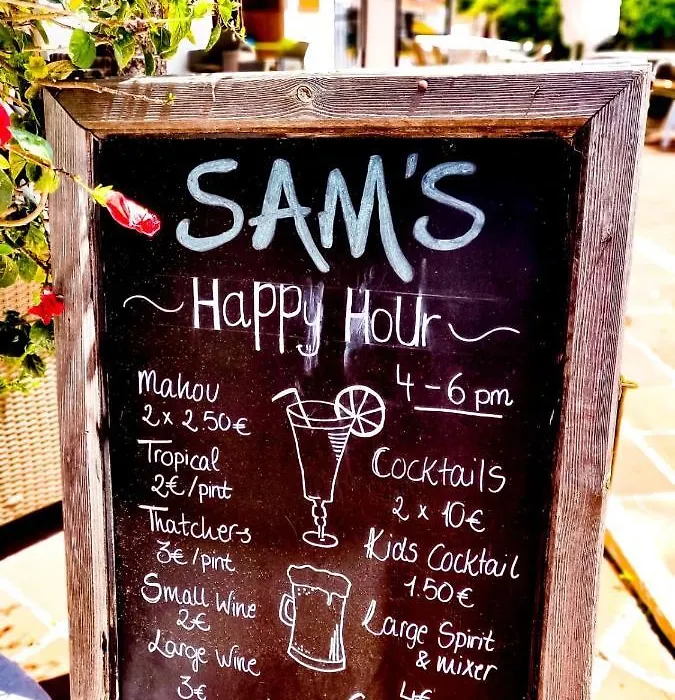 SAM'S
Happy Hour
4 - 6 pm
Mahou
2 x 2.50€
Tropical
2€/pint
Thatchers
3€/pint
Small Wine
2€
Large Wine
3€
Cocktails
2 x 10€
Kids Cocktail
1.50€
Large Spirit
& mixer
4€